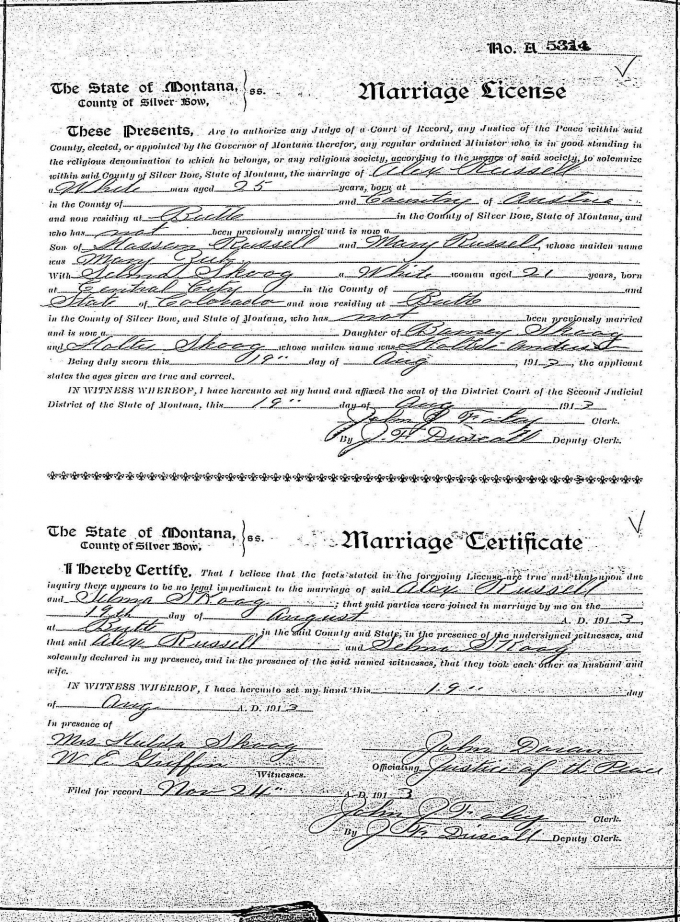 No. A 5314
The State of Montana, } ss.
County of Silver Bow,
Marriage License
These Presents, Are to authorize any Judge of a Court of Record, any Justice of the Peace within said
County, elected, or appointed by the Governor of Montana therefor, any regular ordained Minister who is in good standing in
the religious denomination to which he belongs, or any religious society, according to the usages of said society, to solemnize
within said County of Silver Bow, State of Montana, the marriage of Alex Russell
a White man aged 25 years, born at
in the County of and Country of Austria
and now residing at Butte in the County of Silver Bow, State of Montana, and
who has not been previously married and is now a
Son of Russell and Mary Russell, whose maiden name
was Mary
With Selma Skoog a White woman aged 21 years, born
at Central City in the County of and
State of Colorado and now residing at Butte
in the County of Silver Bow, and State of Montana, who has not been previously married
and is now a Daughter of Skoog
and Skoog whose maiden name was
Being duly sworn this 19" day of Aug, 1913, the applicant
states the ages given are true and correct.
IN WITNESS WHEREOF, I have hereunto set my hand and affixed the seal of the District Court of the Second Judicial
District of the State of Montana, this 19" day of Aug 1913
John J Foley Clerk.
By J. F. Driscoll Deputy Clerk.
The State of Montana, } ss.
County of Silver Bow,
Marriage Certificate
I Hereby Certify, That I believe that the facts stated in the foregoing License are true and that upon due
inquiry there appears to be no legal impediment to the marriage of said Alex Russell
and Selma Skoog; that said parties were joined in marriage by me on the
19th day of August A. D. 1913,
at Butte in the said County and State, in the presence of the undersigned witnesses, and
that said Alex Russell and Selma Skoog
solemnly declared in my presence, and in the presence of the said named witnesses, that they took each other as husband and
wife.
IN WITNESS WHEREOF, I have hereunto set my hand this 19" day
of Aug A. D. 1913
In presence of
Mrs Hulda Skoog
John Doran
W. E. Griffin
Witnesses.
Officiating Justice of the Peace
Filed for record Nov 24" A. D. 1913
John J Foley Clerk.
By J F Driscoll Deputy Clerk.